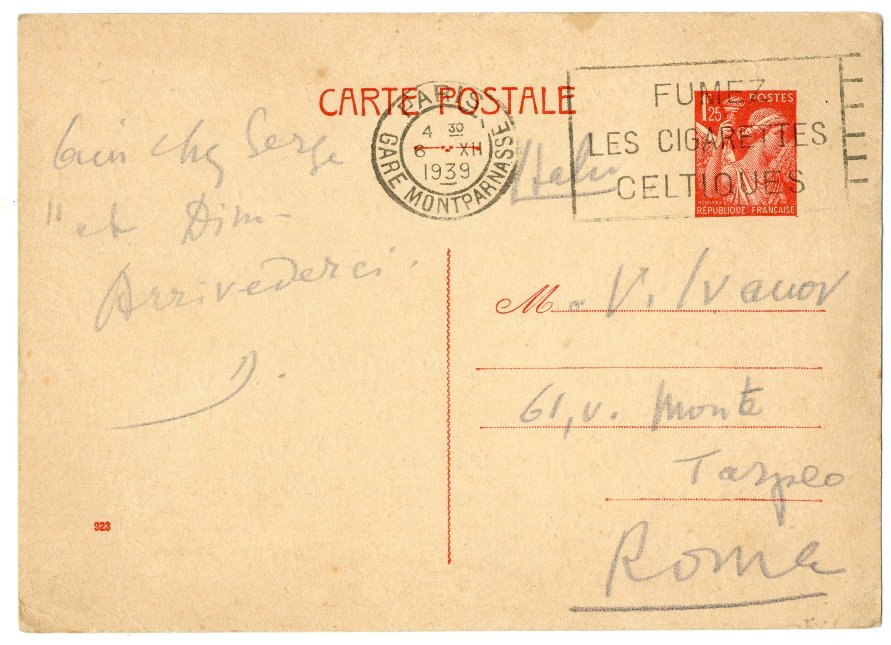 CARTE POSTALE
PARIS
GARE MONTPARNASSE
4 30
6 - XII
1939
FUMEZ
LES CIGARETTES
CELTIQUES
1,25 POSTES
RÉPUBLIQUE FRANÇAISE
chez Serge
" et Dim-
Arrivederci.
D.
M V. Ivanov
61, v. Monte
Tarpeo
Roma
923